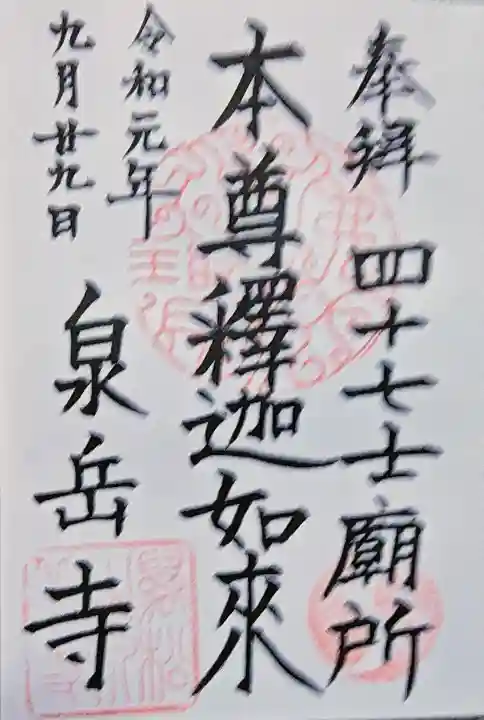 奉拝 四十七士廟所
本尊釋迦如來
令和元年
九月廿九日
泉岳寺